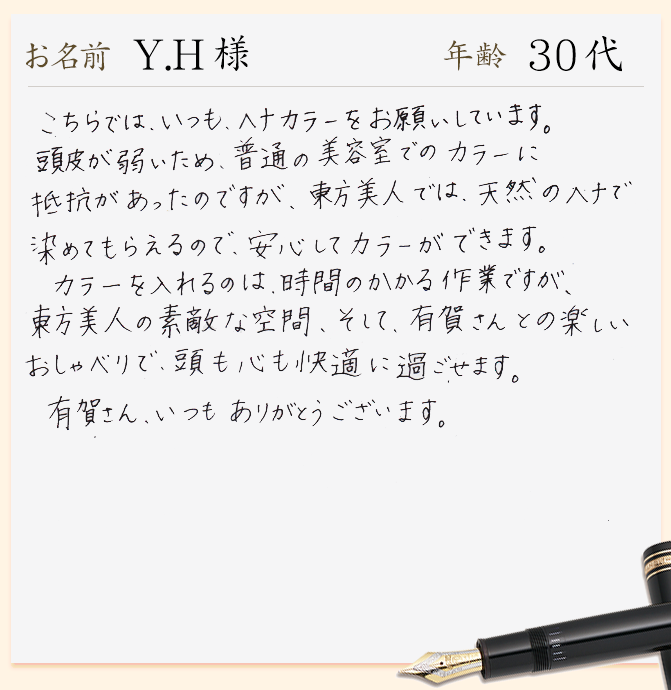 お名前 Y.H 様 年齢 30代
こちらでは、いつも、ヘナカラーをお願いしています。
頭皮が弱いため、普通の美容室でのカラーに
抵抗があったのですが、東方美人では、天然のヘナで
染めてもらえるので、安心してカラーができます。
カラーを入れるのは、時間のかかる作業ですが、
東方美人の素敵な空間、そして、有賀さんとの楽しい
おしゃべりで、頭も心も快適に過ごせます。
有賀さん、いつもありがとうございます。